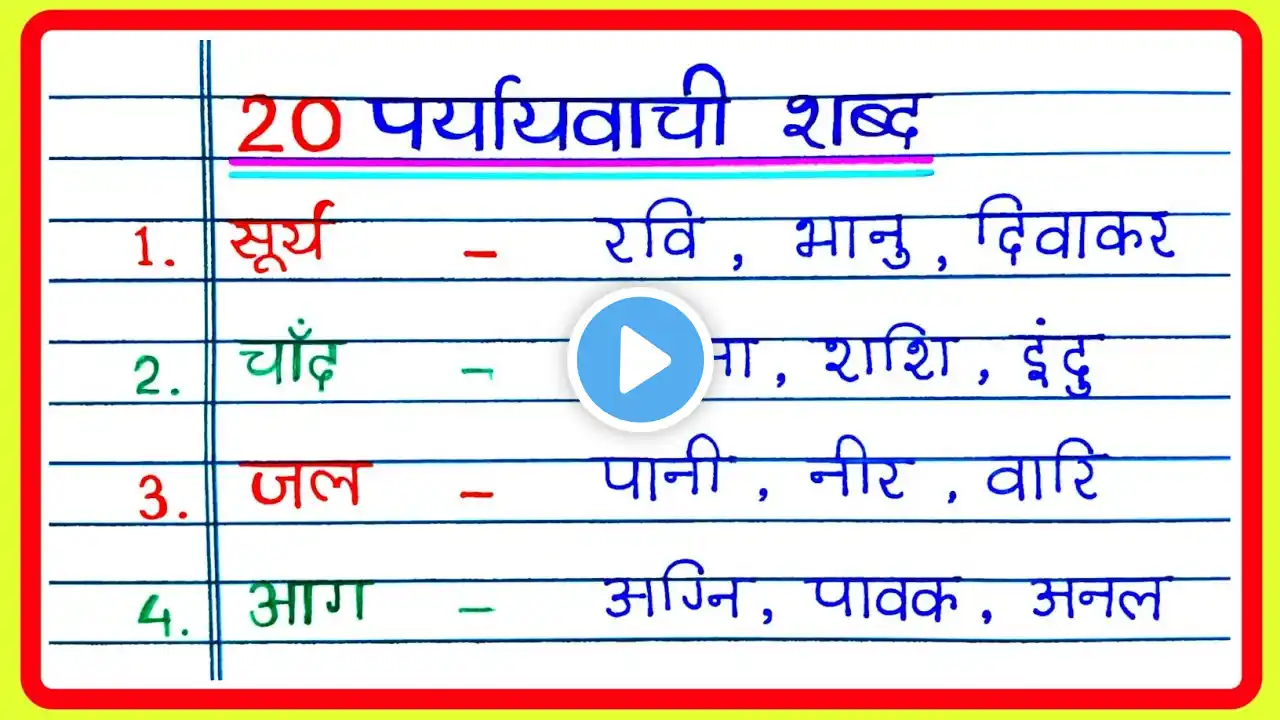 20 पर्यायवाची शब्द
1. सूर्य - रवि, भानु, दिवाकर
2. चाँद - शशि, इंदु
3. जल - पानी, नीर, वारि
4. आग - अग्नि, पावक, अनल